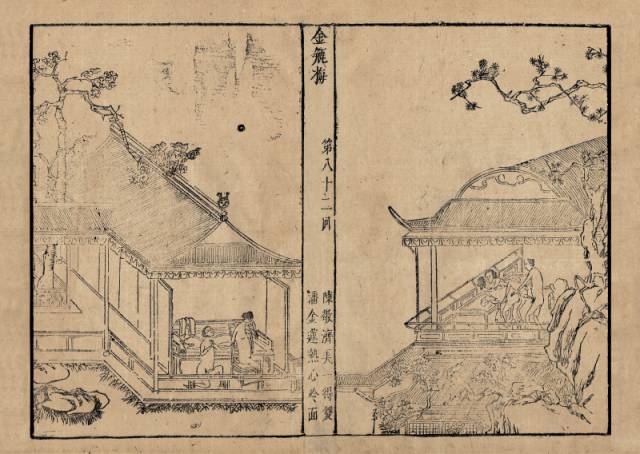 金瓶梅
第八十二回
陳敬濟弄一得雙
潘金蓮熱心冷面